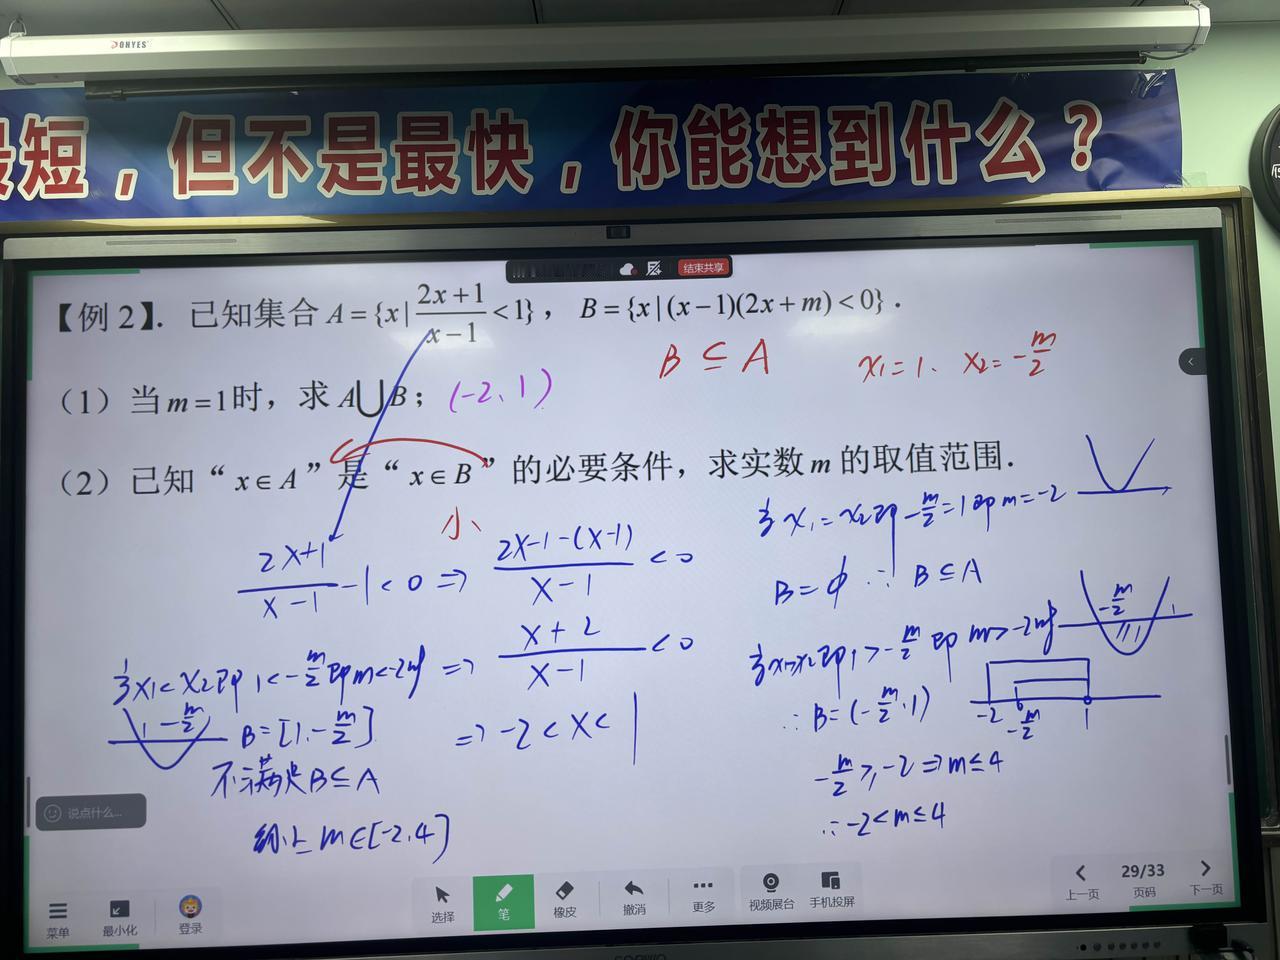 DONYES
最短，但不是最快，你能想到什么？
结束共享
【例2】. 已知集合 A={x|(2x+1)/(x-1)<1}，B={x|(x-1)(2x+m)<0}.
B⊆A
x₁=1. x₂=-m/2
（1）当m=1时，求A⋃B；(-2、1)
（2）已知“x∈A”是“x∈B”的必要条件，求实数m的取值范围.
小
(2x+1)/(x-1)-1<0 ⇒ (2x-1-(x-1))/(x-1)<0
⇒ (x+2)/(x-1)<0
⇒ -2<x<1
x₁<x₂即1<-m/2即m<-2时
1 -m/2
B=[1,-m/2]
不满足B⊆A
综上 m∈[-2,4]
x₁=x₂即-m/2=1即m=-2
B=∅ ∴ B⊆A
x₁>x₂即1>-m/2即m>-2时
-m/2 1
∴B=(-m/2,1)
-2 -m/2 1
-m/2≥-2⇒m≤4
∴-2<m≤4
说点什么...
菜单
最小化
登录
选择
笔
橡皮
撤消
更多
视频展台
手机投屏
上一页
29/33
页码
下一页